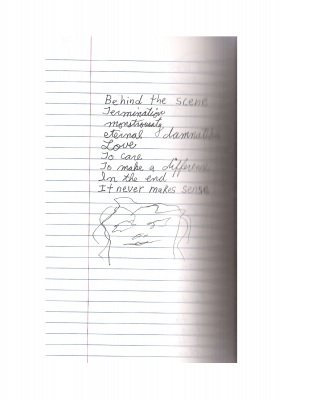 Behind the scene
Termination
monstrousity
eternal & damnation
Love
To care
To make a difference
In the end
It never makes sense